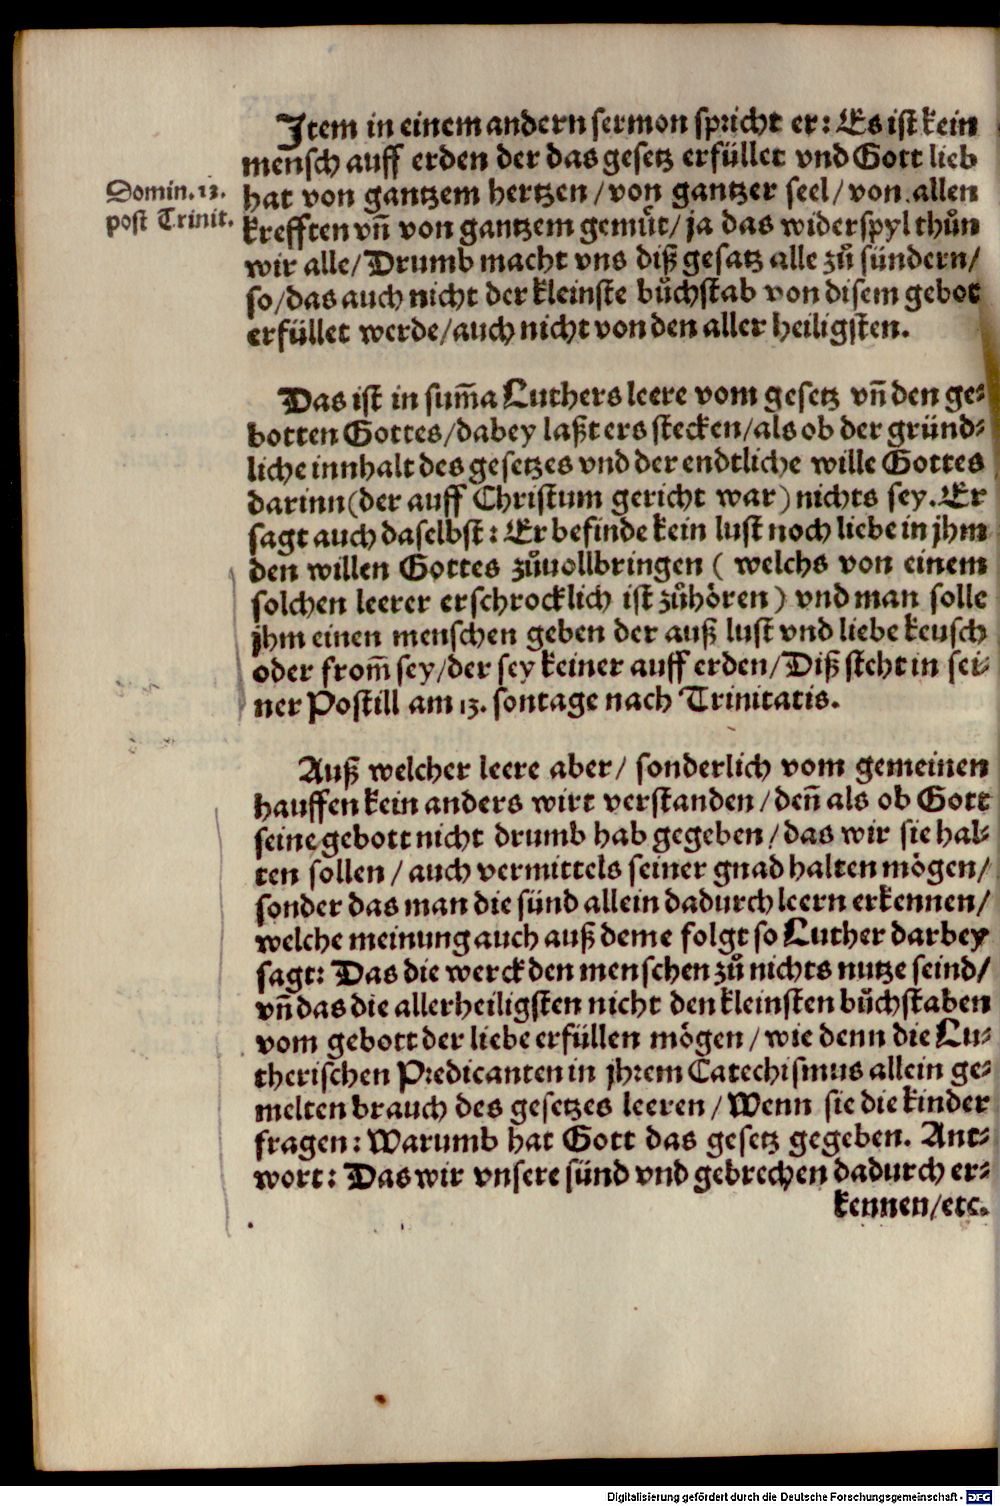 Item in einem andern sermon spricht er: Es ist kein
mensch auff erden der das gesetz erfüllet vnd Gott lieb
Domin. 13.
post Trinit.
hat von gantzem hertzen / von gantzer seel / von allen
krefften vñ von gantzem gemuͤt / ja das widerspyl thuͦn
wir alle / Drumb macht vns diß gesatz alle zuͦ sündern /
so / das auch nicht der kleinste buͦchstab von disem gebot
erfüllet werde / auch nicht von den aller heiligsten.
Das ist in sum̃a Luthers leere vom gesetz vñ den ge-
botten Gottes / dabey laßt ers stecken / als ob der gründ-
liche innhalt des gesetzes vnd der endtliche wille Gottes
darinn (der auff Christum gericht war) nichts sey. Er
sagt auch daselbst: Er befinde kein lust noch liebe in jhm
den willen Gottes zuͦuollbringen ( welchs von einem
solchen leerer erschrocklich ist zuͦhoͤren ) vnd man solle
jhm einen menschen geben der auß lust vnd liebe keusch
oder from̃ sey / der sey keiner auff erden / Diß steht in sei-
ner Postill am 13. sontage nach Trinitatis.
Auß welcher leere aber / sonderlich vom gemeinen
hauffen kein anders wirt verstanden / deñ als ob Gott
seine gebott nicht drumb hab gegeben / das wir sie hal-
ten sollen / auch vermittels seiner gnad halten moͤgen /
sonder das man die sünd allein dadurch leern erkennen /
welche meinung auch auß deme folgt so Luther darbey
sagt: Das die werck den menschen zuͦ nichts nutze seind /
vñ das die allerheiligsten nicht den kleinsten buͦchstaben
vom gebott der liebe erfüllen moͤgen / wie denn die Lu-
therischen Predicanten in jhrem Catechismus allein ge-
melten brauch des gesetzes leeren / Wenn sie die kinder
fragen: Warumb hat Gott das gesetz gegeben. Ant-
wort: Das wir vnsere sünd vnd gebrechen dadurch er-
kennen / etc.
Digitalisierung gefördert durch die Deutsche Forschungsgemeinschaft - DFG